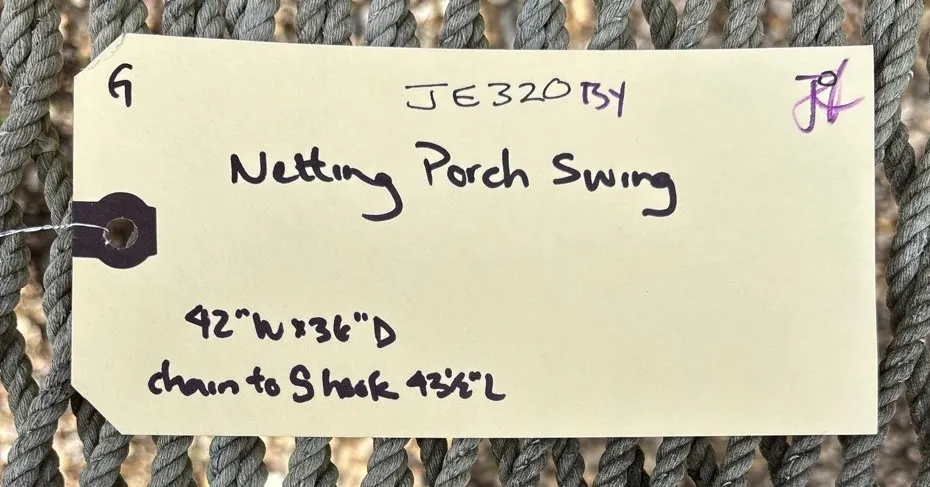 G
JE320BY
Netting Porch Swing
42"W x 36"D
chain to S hook 43½"L